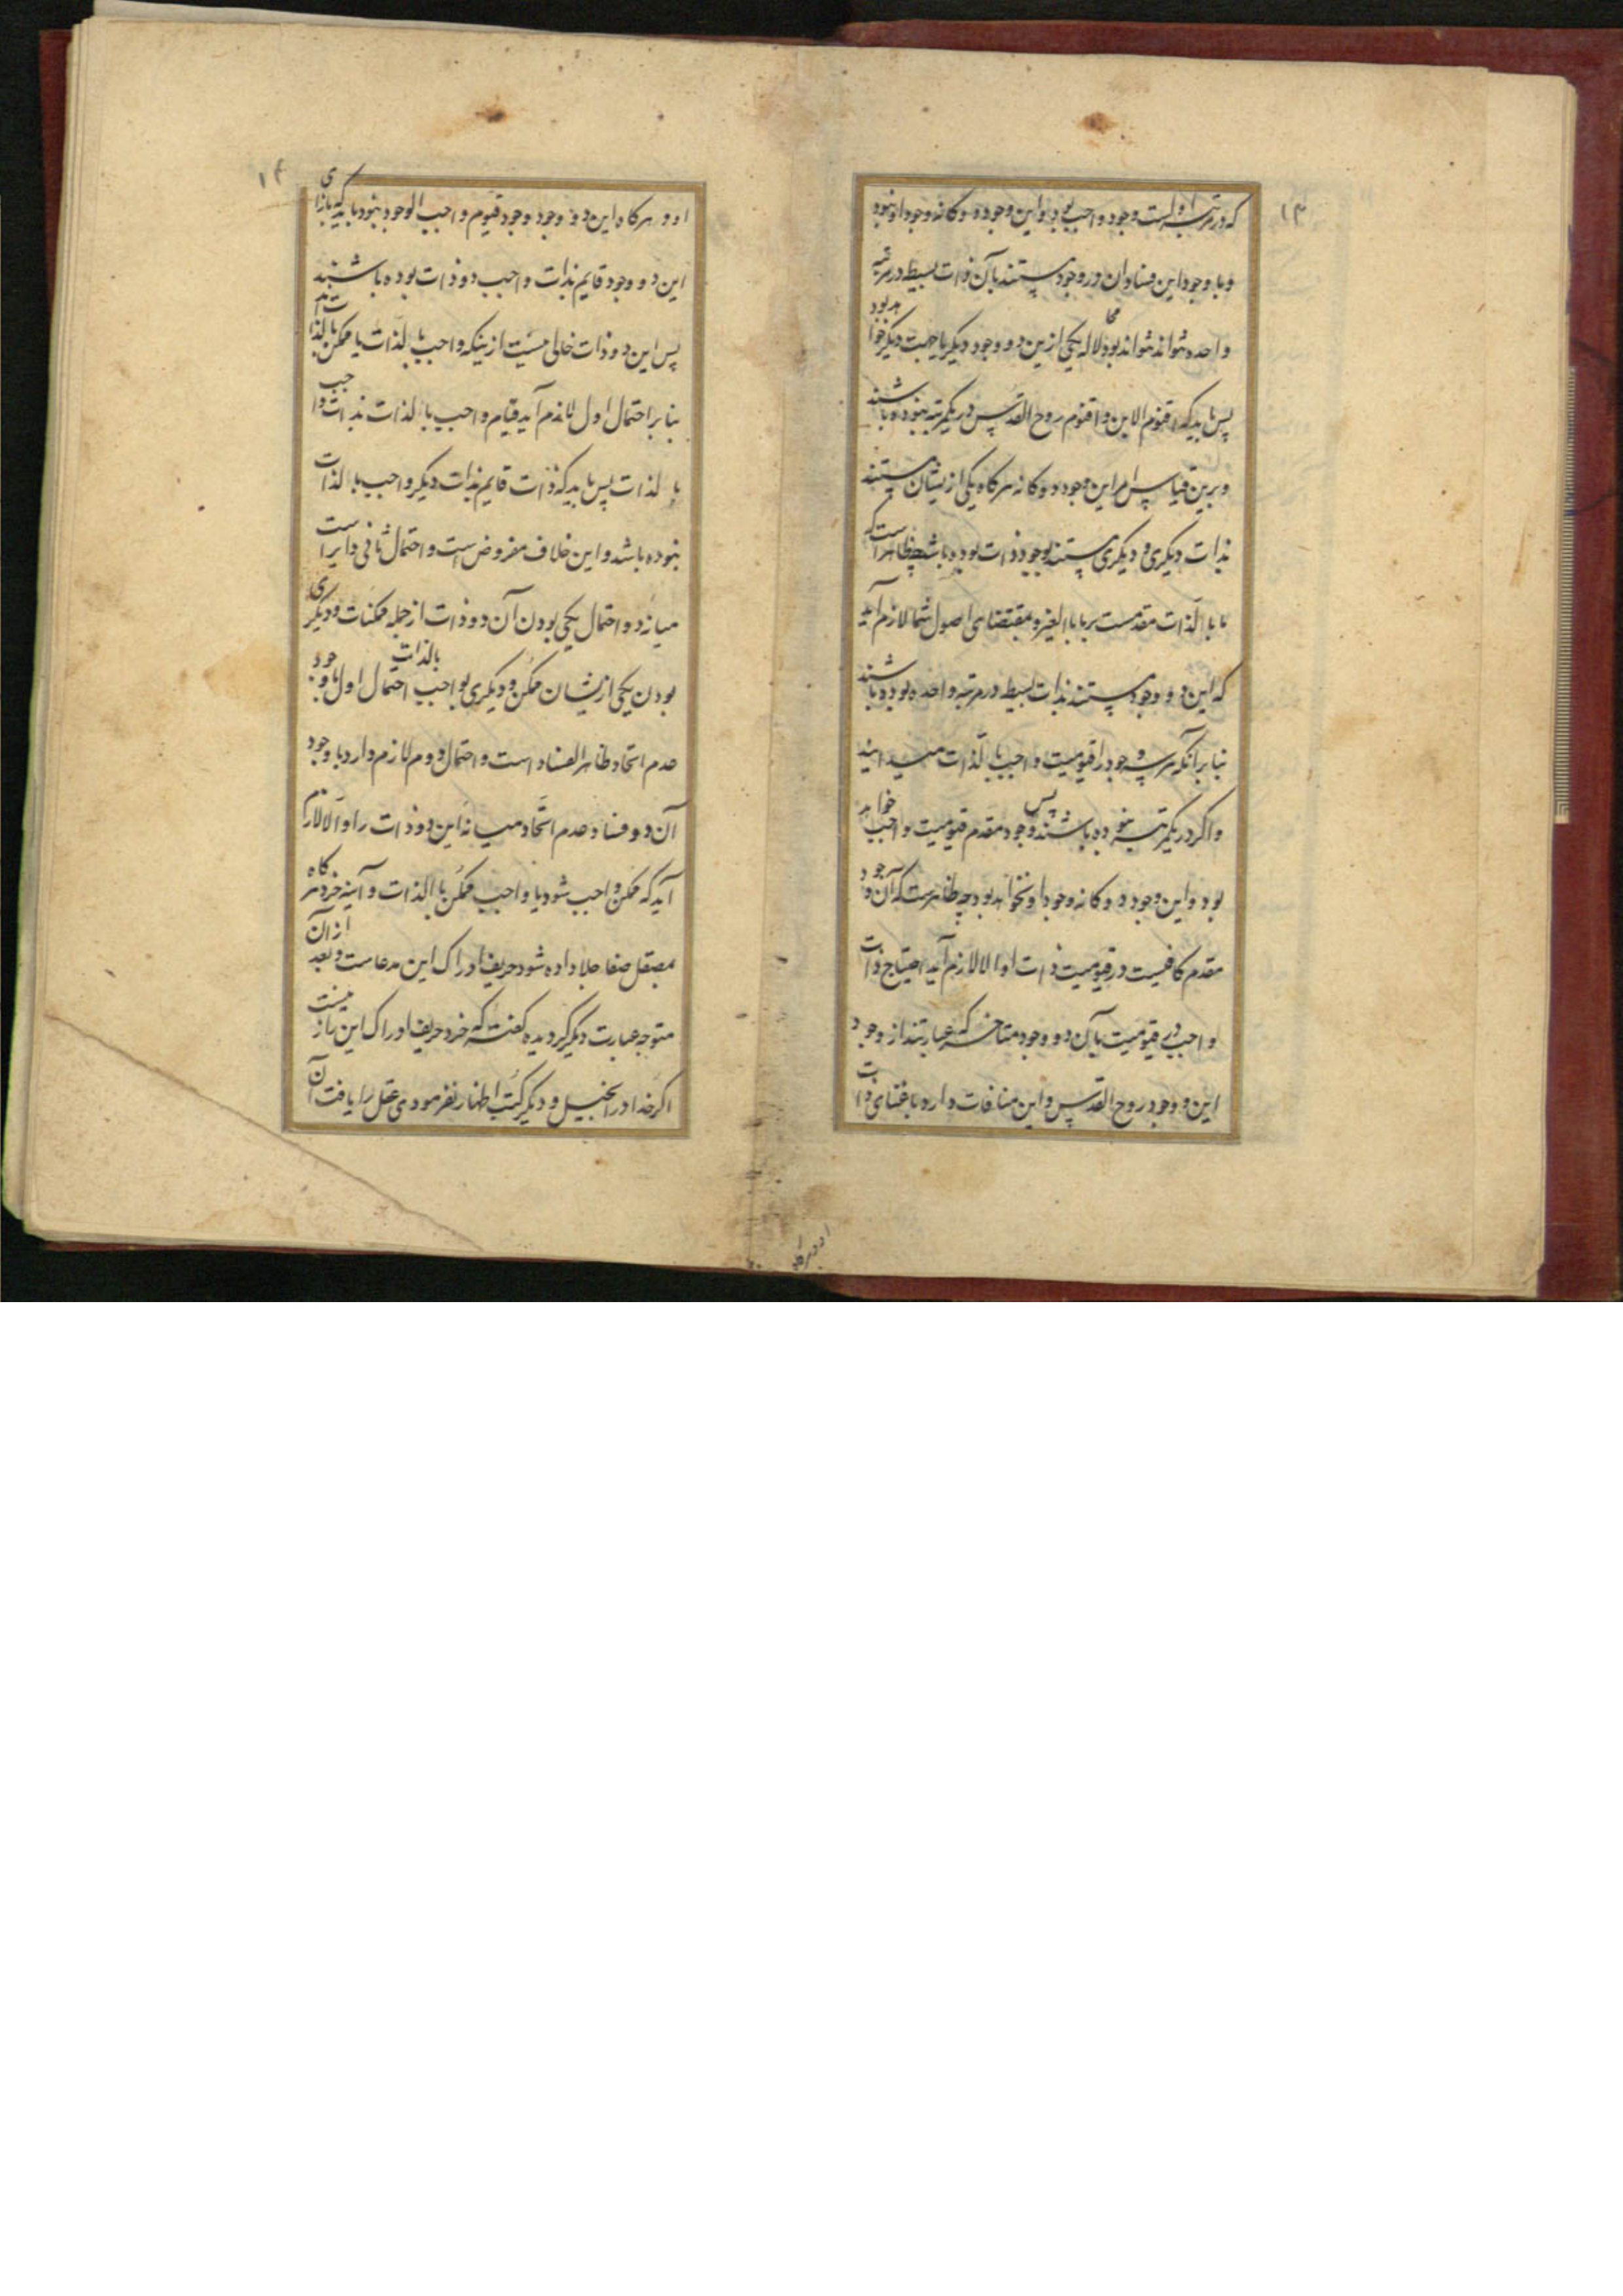 ۱۳
که در مرتبه اولست وجود واجب بود و این وجود دوکانه وجود او نبود
و با وجود این فساد ان دو وجود مستند بآن ذات بسیط در مرتبه
واحده نتواند بود لا محاله یکی ازین دو وجود دیگر با جهت دیگر خواهد بود
پس باید که اقنوم الابن و اقنوم روح القدس در یکمرتبه نبوده باشند
و برین قیاس امر این وجود دوکانه هرکاه یکی از یشان مستند
بذات دیگری و دیگری مستند بوجود ذات بوده باشد چه ظاهر است که
ما بالذات مقدمست بر ما بالغیر و بمقتضای اصول شما لازم آید
که این دو وجود مستند بذات بسیط در مرتبه واحده بوده باشند
بنا بر آنکه هر سه وجود را قیومیت واجب بالذات میدانید
و اکر در یکمرتبه نبوده باشند پس وجود مقدم قیومیت واجب خواهد
بود و این وجود دوکانه وجود او نخواهد بود چه ظاهرست که آن وجود
مقدم کافیست در قیومیت ذات او و الا لازم آید احتیاج ذات
واجب در قیومیت بآن دو وجود متاخر که عبارتند از وجود
ابن و وجود روح القدس و این منافات دارد با غنای ذات
او و هرکاه
۱۴
او و هرکاه این دو وجود وجود قیوم واجب الوجود نبود باید که بازای
این دو وجود قایم بذات واجب دو ذات بوده باشند
پس این دو ذات خالی نیست ازینکه واجب بالذاتند یا ممکن بالذات
بنا بر احتمال اول لازم آید قیام واجب بالذات بذات واجب
بالذات پس باید که ذات قایم بذات دیگر واجب بالذات
نبوده باشد و این خلاف مفروض است و احتمال ثانی دایر است
میانه دو احتمال یکی بودن آن دو ذات از جمله ممکنات و دیگری
بودن یکی ازیشان ممکن و دیگری واجب بالذات احتمال اول با وجود
عدم اتحاد ظاهر الفساد است و احتمال دوم لازم دارد با وجود
آن دو فساد عدم اتحاد میانه این دو ذات را و الا لازم
آید که ممکن واجب شود یا واجب ممکن بالذات و آینه خرد هرکاه
بمصقل صفا جلا داده شود حریف ادراک این مدعاست و بعد از آن
متوجه عبارت دیگر کردیده کفته که خرد حریف ادراک این راز نیست
اکر خدا در انجیل و دیگر کتب اظهار نفرمودی عقل را یافت آن